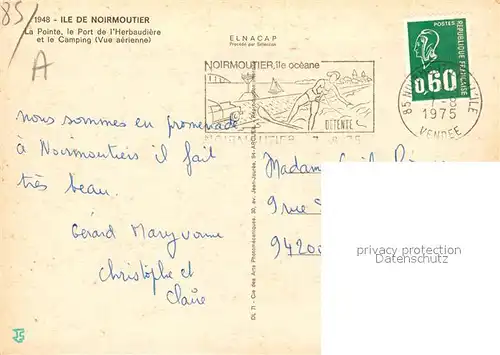 85/
A
1948 - ILE DE NOIRMOUTIER
La Pointe, le Port de l'Herbaudière
et le Camping (Vue aérienne)
ELNACAP
Procédé par Sélection
NOIRMOUTIER, île océane
DETENTE
NOIRMOUTIER 7-8-75
POSTES
REPUBLIQUE FRANÇAISE
0,60
85 L'ILE
7-8
1975
VENDEE
nous sommes en promenade
à Noirmoutiers il fait
très beau.
Gérard Maryvonne
Christophe et
Claire
DL 71 - Cie des Arts Photomécaniques, 20, av. Jean-Jaurès, 94-ARCUEIL
Madame
9 rue
9420
privacy protection
Datenschutz